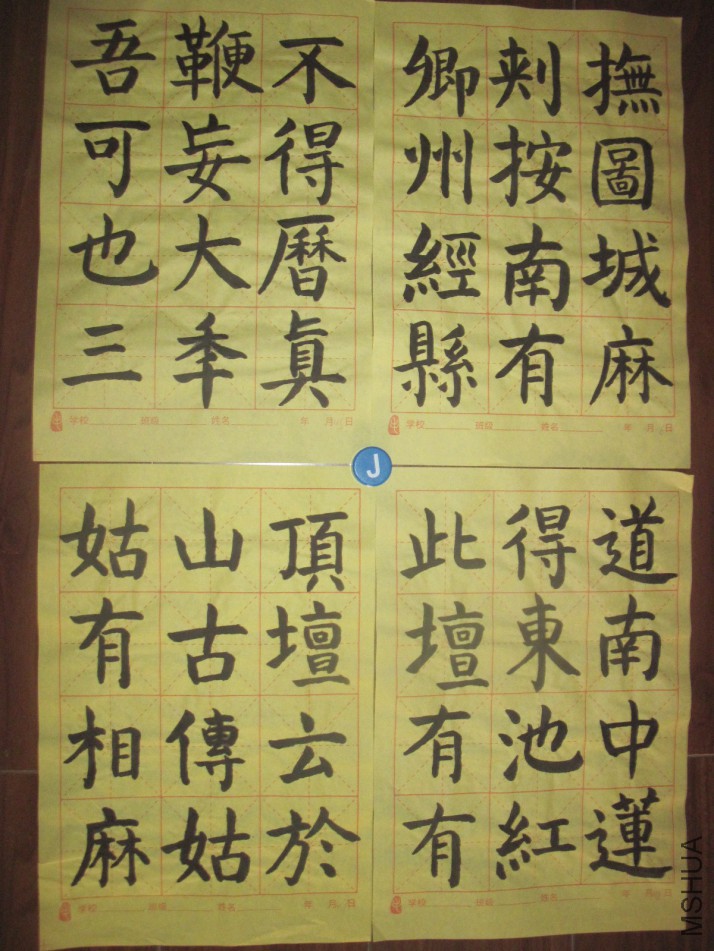 吾鞭不
可妄得
也大曆
三秊眞
学校 班级 姓名 年 月 日
卿刾撫
州按圖
經南城
縣有麻
学校 班级 姓名 年 月 日
J
姑山頂
有古壇
相傳云
麻姑於
学校 班级 姓名 年 月 日
此得道
壇東南
有池中
有紅蓮
学校 班级 姓名 年 月 日
MSHUA